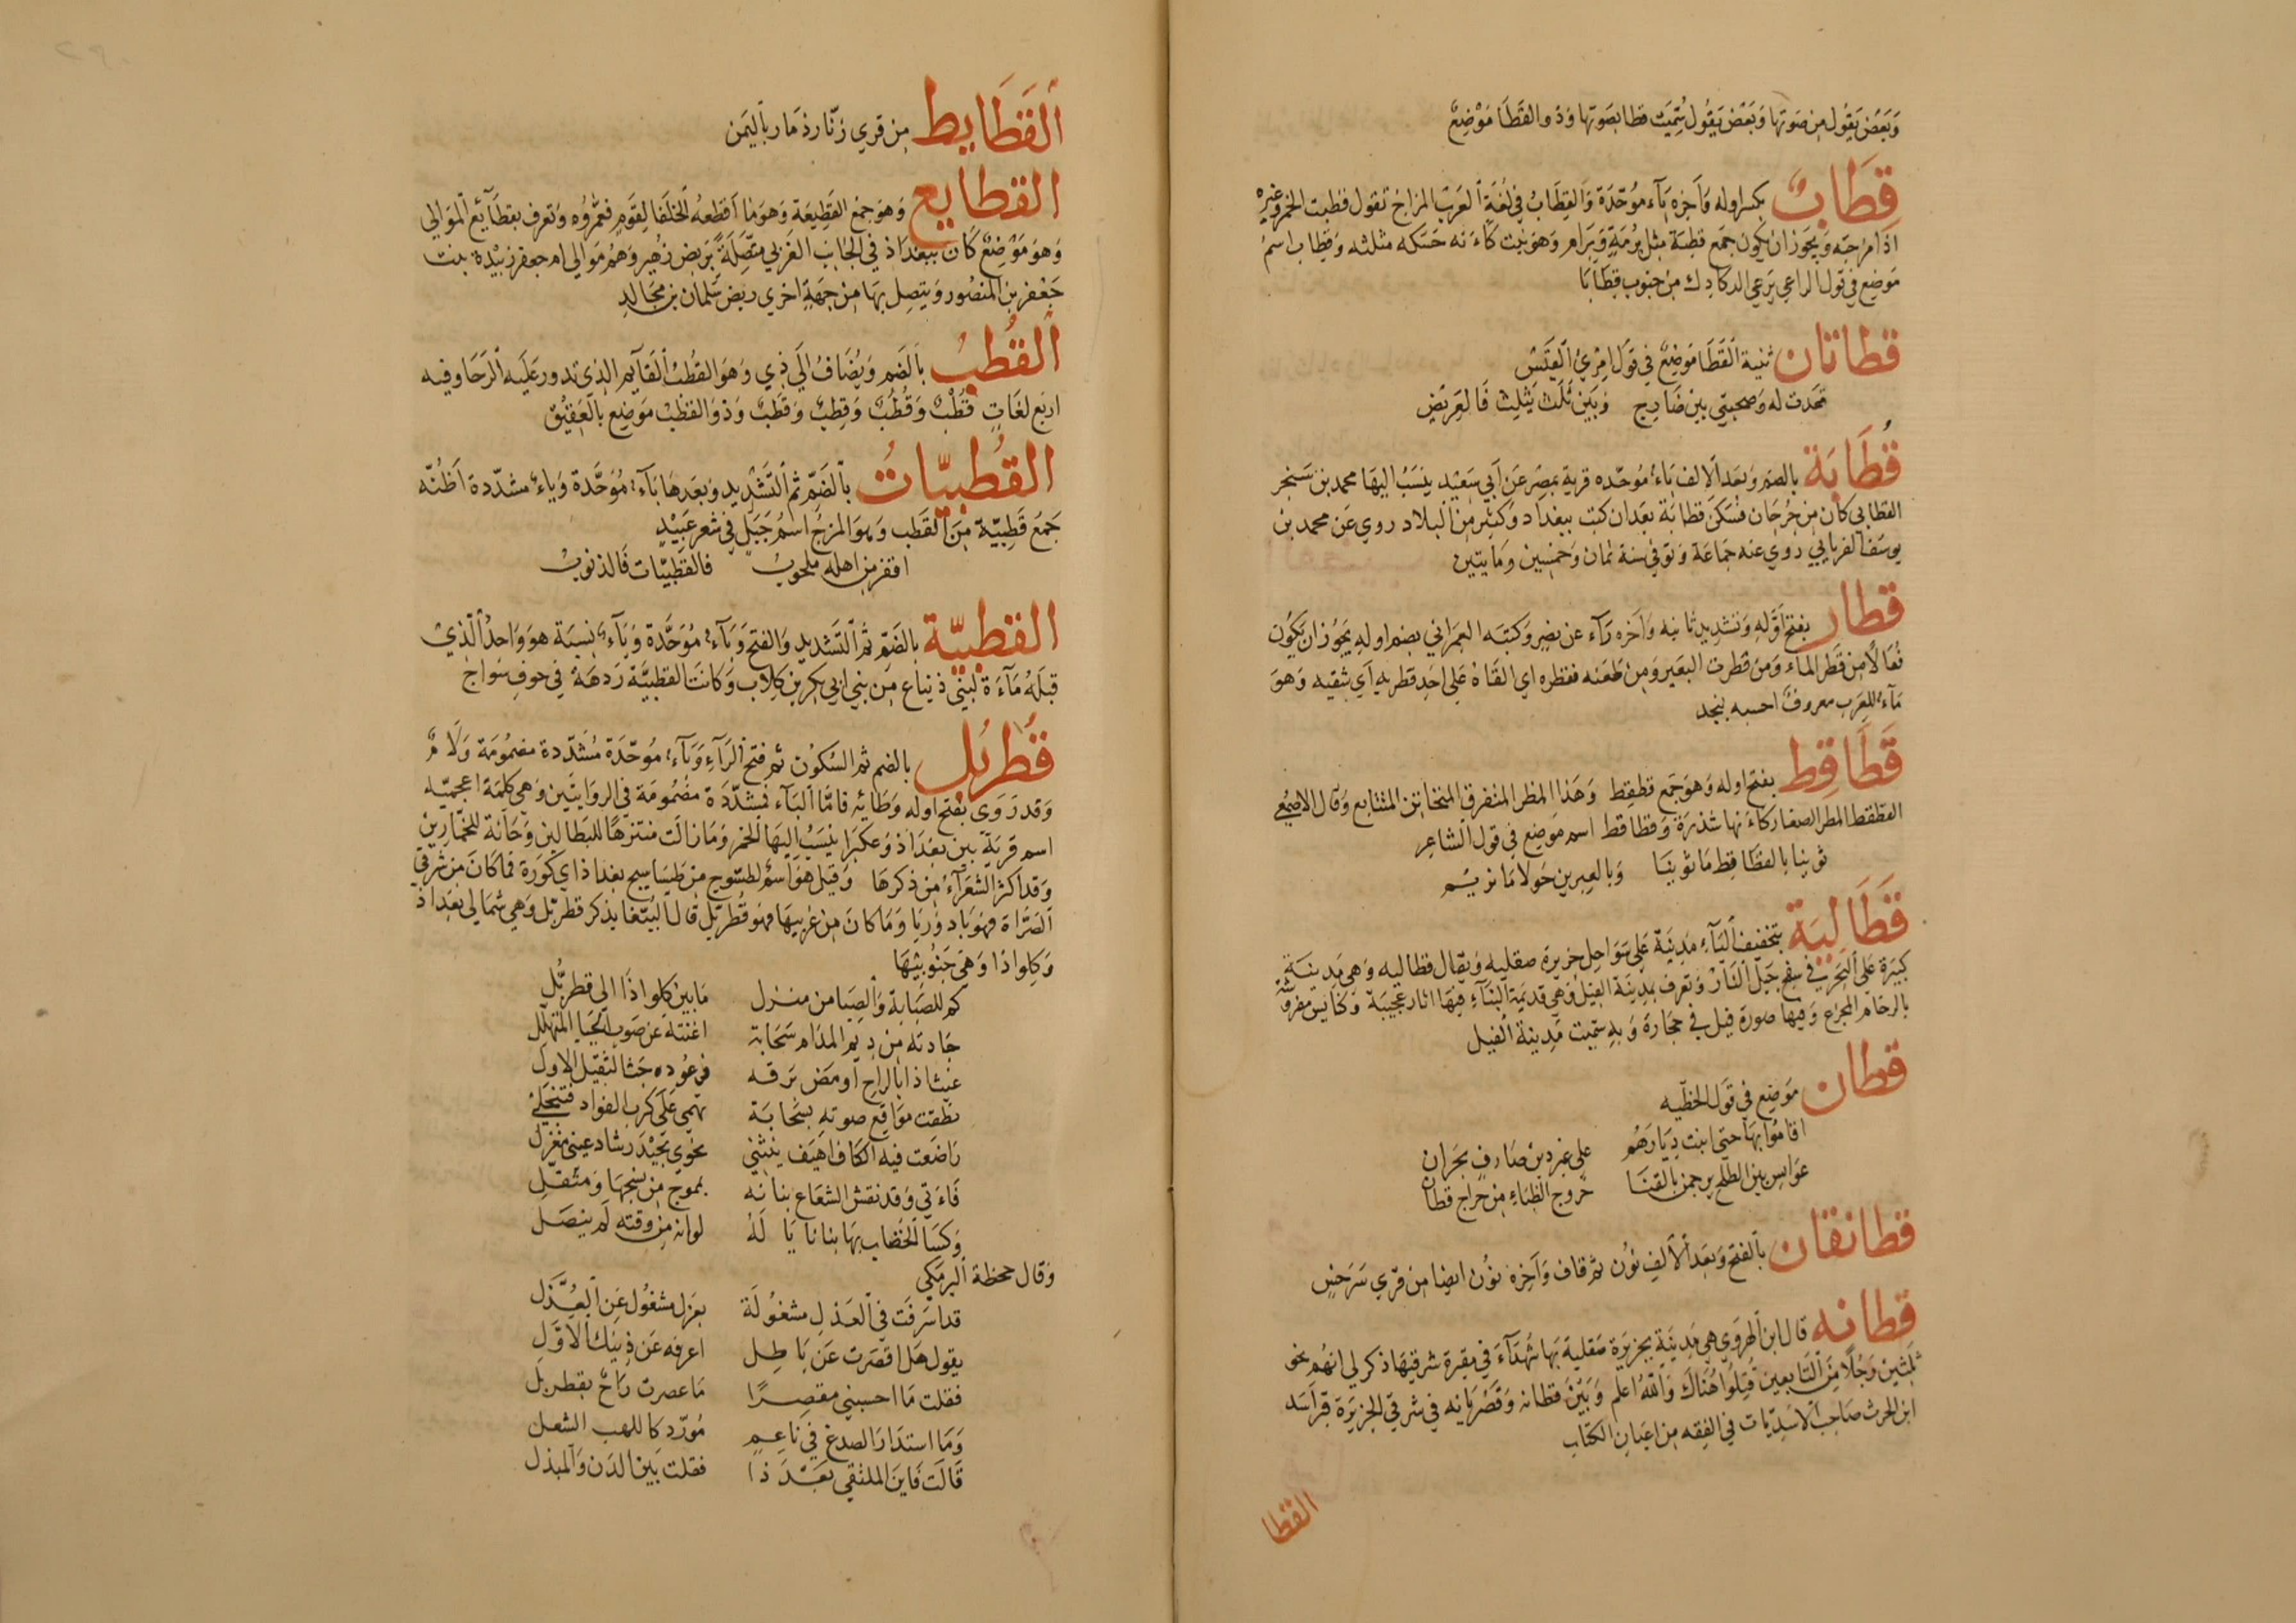 وَبَعَضٌ يَقُول مِن صَوتها وَبَعَضٌ يَقُول سُمِّيَت قطا بصَوتها وَذُو القَطَا مَوْضِعٌ
قِطَابٌ بكسر اوله وَآخره بَآء مُوَحَّدَة وَالقِطَابُ في لُغَةِ العَرَب المزاج تقول قطبت الخمر وَغيره
اذا مزجته وَيجوز ان يكون جمَع قطبَة مثل بُرْمَة وَبِرَام وَهو نبت كَاَنه حَسَكه مثلثه وَقطاب اسم
مَوضِع في قول الراعي يَرعي الدكادك من جنوب قِطَابَا
قطاتان ثنية القَطَا مَوضِعٌ في قَول امرئ القَيْس
قعَدت له وَصحبتي بين ضَارج وَبَين تلاع يثلث فَالعَرِيض
قُطَابَة بالضم وَبعد الالف بَاء مُوحّده قرية بمصرَ عَن اَبي سَعيْد ينسَبُ اليهَا محمد بن سَنجر
القطابي كان من جُرجَان فسَكن قطابَة بعَد ان كتب ببغداد وَكثير من البلاد روي عَن محمد بن
يوسَف الفريابي روي عنه جَماعَة وَتوفي سنة ثمان وَخمسين وَمايتين
قطار بفتح اَوّله وَتشديد ثانيه وَآخره رَآء عن نصر وَكتبه العمراني بضم اوله يجَوُز ان يَكُون
فُعَالاً من قَطر الماء وَمن قطرت البعَير وَمن طعَنه فقطره اي القَاهُ عَلى اَحد قطريه اَي شقيه وَهوَ
مَآء للعَرب معرُوفٌ احسبه بنجد
قَطَاقِط بفتح اوله وَهوَ جَمع قطقِط وَهَذا المطر المتفرق المتحاتن المتتابع وَقال الاصمعي
القطقط المطر الصغار كاَنها شذرَة وَقطاقط اسم مَوضع في قول الشَاعِر
ثوينا بالقطَاقِط مَا ثوينَا وَبالعبرين حَولا مَا نريم
قَطَالِيَة بتخفيف اليَآء مدِينَة عَلى سَوَاحِل جزيرة صقلِيه وَيقال قطاليه وَهي مَدِينَة
كَبيرَة عَلى البَحَر في سفح جَبل النَار وَتعرف بمدِينَة الفيل وَهي قديمة البنَآء فيهَا اثار عَجيبَة وَكنايس مفروشَة
بالرخام المجزع وَفيها صورة فيل في حجَارة وَبه سميت مَدِينة الفيل
قطان مَوضِع في قَول الحطيه
اقامُوا بهَا حتي ابنت دِيَارهُم عَلى غير دين ضَارب بجران
عَوَابس بين الطلح يرجمن بالقنَا خرُوج الظباء من حَراج قطان
قطانقان بالفتح وَبعَد الاَلف نوُن ثم قاف وَآخره نوُن ايضا من قري سَرَخس
قطانه قال ابن الهروي هي مَدِينَة بجزيرة صَقلية بهَا شُهَدَآءَ في مقبرة شرقيهَا ذكر لي انهُم نحو
ثلثين رَجُلاً مِنَ التَابعين قُتِلُوا هُنَاكَ وَاللهُ اعلم وَبَيْنَ قطانه وَقصريانه في شرقي الجزيرَة قبر اَسَد
ابن الحرث صَاحِب الاسَدِيّات في الفقه من اعيَان الكتاب
القطا
اَلقَطَايط من قري زنّار ذمَار باليَمن
القطايع وَهوَ جمع القَطِيعَة وَهوَ مَا اَقطعهُ الخلَفا لقومٍ فعمّروُه وَتعرف بقطَآئع الموَالي
وَهوَ مَوْضِعٌ كَان ببَغدَاذ في الجَانِب الغَربي متّصِلَةً برَبض زهُير وَهُم مَوَالي ام جعفر زبَيْدة بنت
جَعْفر بن المنصُور وَيتصِل بهَا من جهَة اخري ربَض سَليمان بن مجَالد
اَلقُطْبُ بالضم وَيُضَافُ الَي ذي وَهوَ القُطب القَآيم الذِي تدور عَلَيه الرَحَا وَفيه
اربَع لغَاتٍ قُطْبٌ وَقُطُبٌ وَقِطبٌ وَقَطبٌ وَذو القطب مَوضِع بالعَقِيْق
القُطَّبِيّاتُ بالضَّمِّ ثم التَشدِيد وَبعَدهَا بَآء مُوَحَّدَة وَيَاء مشدّدة اَظُنّه
جَمعُ قَطِبيّة مِنَ القَطب وَهوَ المزجُ اسمُ جَبَلٍ في شعر عَبَيْدٍ
اقفر من اهله ملحُوب فالقطّبيّات فَالذنوب
القطبيّة بالضَمّ ثم التشديد وَالفتح وَبَآء مُوَحَّدة وَيَآء نسبَة هوَ وَاحدُ الّذي
قبلَهُ مَآءَة لبني ذنباع مِن بني ابي بكر بن كِلاب وَكانت القطبيَّة رَدهَة في جوف سُواج
قُطْرَبُّل بالضم ثم السُكوُن ثم فتح الرَآء وَبَآء مُوَحّدَة مُشَدّدة مضموُمَة وَلَام
وَقد رَوَي بفتح اوله وَطَائِه فامَّا البَآء فمشَدّدَة مضمُومَة في الروَايتَين وَهي كلمة اعجميّه
اسم قريَة بين بغدَاذ وَعكبرَا ينسَبُ اليهَا الخمر وَمَا زالت متنزهًا للبطالين وَحَانة للخمّارين
وَقد اكثر الشعَرَاء من ذكرهَا وَقيل هوَ اسمُ لطسّوج من طسَاسيج بغداذ اي كورَة فما كان من شرقي
الصَرَاة فهوَ بَادوُريَا وَمَا كان من غربيهَا فهوَ قُطربّل قال الببّغا يذكر قطربّل وَهي شمَالي بغدَاذ
وَكلواذا وَهي جَنوُبيهَا
كم للصَبَابَة وَالصِبَا من منزل مَا بين كلواذا الى قطربُّل
جَادته من دِيَم المدَام سَحَابَة اغنته عن صَوب الحيَا المتهلِّل
غيث اذا بالراح اومَض بَرقه فرعوُده حث الثقيل الاول
نطقت مَوَاقع صوته بسحَابَة تهمي عَلى كرَب الفؤاد فتنجَلي
رَاضعَت فيه الكَاس اهيَف ينثني نحوي بجيد رشا وَعيني مغزل
فَاَتي وَقد نقش الشعَاع بنانه بموج من نسجهَا وَمثقل
وَكسَا الخضَاب بهَا بنانا يَا لهُ لو انه من وَقته لَم ينصَل
وَقال جحظة البرمَكي
قد اسرَفت في العَذل مشغُولَة بعَزل مشغُول عَن العُذَّل
يقول هَل اقصَرت عَن بَاطِل اعرفه عَن دِينك الاَوَّل
فقلت مَا احسبني مقصِرًا مَا عصرت رَاحٌ بقطربّل
وَمَا استدَارَ الصدغ في نَاعِمٍ مُورّد كاللهب الشعل
قَالَت فَاين الملتقي بَعْدَ ذا فقلت بَين الدَن وَالمبذل